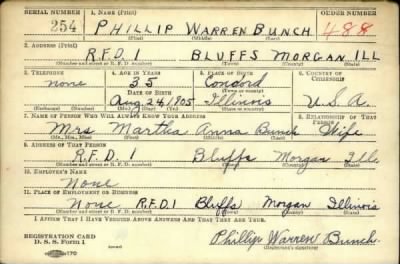 SERIAL NUMBER 1. NAME (Print) ORDER NUMBER
254 PHILLIP WARREN BUNCH 488
(First) (Middle) (Last)
2. ADDRESS (Print)
R.F.D. 1 BLUFFS MORGAN ILL
(Number and street or R. F. D. number) (Town) (County) (State)
3. TELEPHONE 4. AGE IN YEARS 5. PLACE OF BIRTH 6. COUNTRY OF CITIZENSHIP
none 35 Concord
DATE OF BIRTH (Town or county)
Aug. 24, 1905 Illinois U.S.A.
(Exchange) (Number) (Mo.) (Day) (Yr.) (State or country)
7. NAME OF PERSON WHO WILL ALWAYS KNOW YOUR ADDRESS 8. RELATIONSHIP OF THAT PERSON
Mrs Martha Anna Bunch Wife
(Mr., Mrs., Miss) (First) (Middle) (Last)
9. ADDRESS OF THAT PERSON
R.F.D. 1 Bluffs Morgan Ill.
(Number and street or R. F. D. number) (Town) (County) (State)
10. EMPLOYER'S NAME
None
11. PLACE OF EMPLOYMENT OR BUSINESS
None R.F.D 1 Bluffs Morgan Illinois
(Number and street or R. F. D. number) (Town) (County) (State)
I AFFIRM THAT I HAVE VERIFIED ABOVE ANSWERS AND THAT THEY ARE TRUE.
REGISTRATION CARD
D. S. S. Form 1 Phillip Warren Bunch
(Registrant's signature)